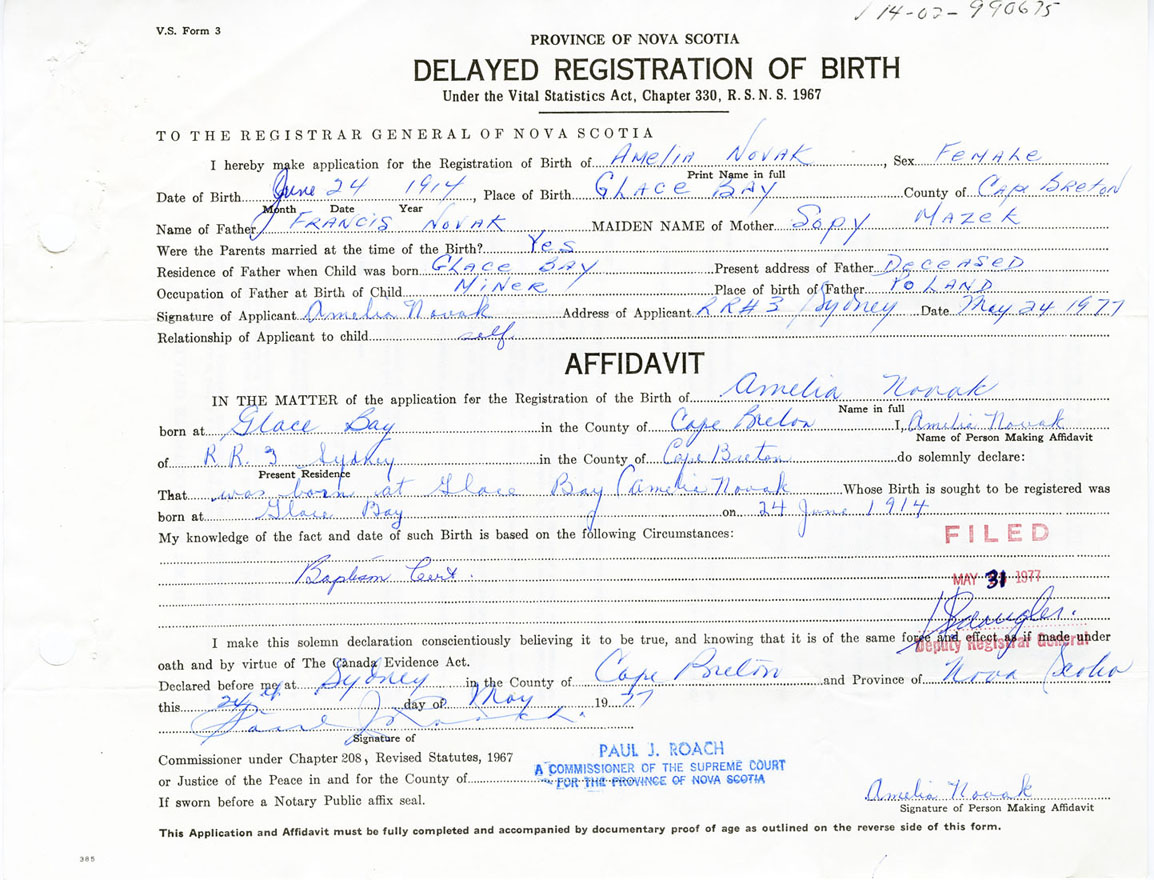 14-02-990675
V.S. Form 3
PROVINCE OF NOVA SCOTIA
DELAYED REGISTRATION OF BIRTH
Under the Vital Statistics Act, Chapter 330, R.S.N.S. 1967
TO THE REGISTRAR GENERAL OF NOVA SCOTIA
I hereby make application for the Registration of Birth of AMELIA NOVAK, Sex FEMALE
Print Name in full
Date of Birth June 24 1914, Place of Birth GLACE BAY County of CAPE BRETON
Month Date Year
Name of Father FRANCIS NOVAK MAIDEN NAME of Mother SOPY MAZEK
Were the Parents married at the time of the Birth? Yes
Residence of Father when Child was born GLACE BAY Present address of Father DECEASED
Occupation of Father at Birth of Child MINER Place of birth of Father POLAND
Signature of Applicant Amelia Novak Address of Applicant RR#3 Sydney Date May 24 1977
Relationship of Applicant to child self
AFFIDAVIT
IN THE MATTER of the application for the Registration of the Birth of Amelia Novak
Name in full
born at Glace Bay in the County of Cape Breton I, Amelia Novak
Name of Person Making Affidavit
of R.R. 3 Sydney in the County of Cape Breton do solemnly declare:
Present Residence
That was born at Glace Bay (Amelia Novak Whose Birth is sought to be registered was
born at Glace Bay on 24 June 1914
My knowledge of the fact and date of such Birth is based on the following Circumstances:
FILED
Baptism Cert.
MAY 31 1977
I make this solemn declaration conscientiously believing it to be true, and knowing that it is of the same force and effect as if made under
Deputy Registrar General
oath and by virtue of The Canada Evidence Act.
Declared before me at Sydney in the County of Cape Breton and Province of Nova Scotia
this 24 day of May 1977
Signature of
Commissioner under Chapter 208, Revised Statutes, 1967
PAUL J. ROACH
or Justice of the Peace in and for the County of
A COMMISSIONER OF THE SUPREME COURT
FOR THE PROVINCE OF NOVA SCOTIA
If sworn before a Notary Public affix seal.
Amelia Novak
Signature of Person Making Affidavit
This Application and Affidavit must be fully completed and accompanied by documentary proof of age as outlined on the reverse side of this form.
385